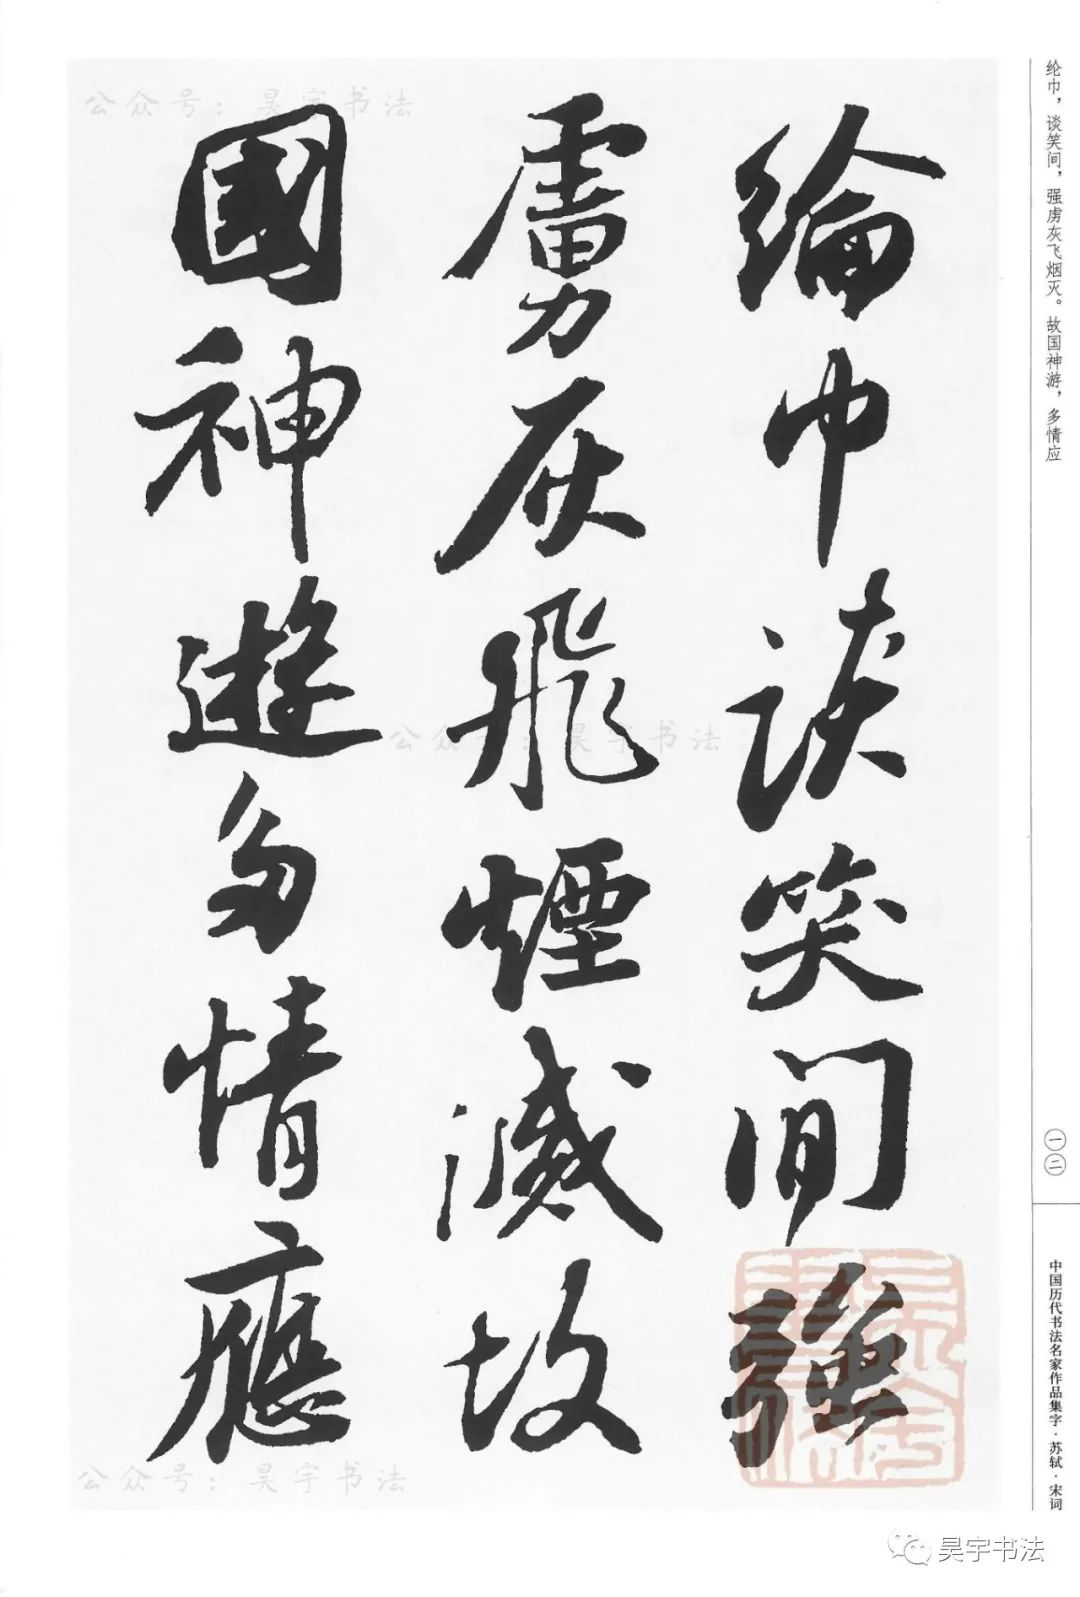 纶巾，谈笑间，强虏灰飞烟灭。故国神游，多情应
公众号：昊宇书法
綸巾談笑間強
虜灰飛煙滅故
國神遊多情應
公众号：昊宇书法
公众号：昊宇书法
一二
中国历代书法名家作品集字·苏轼·宋词
昊宇书法